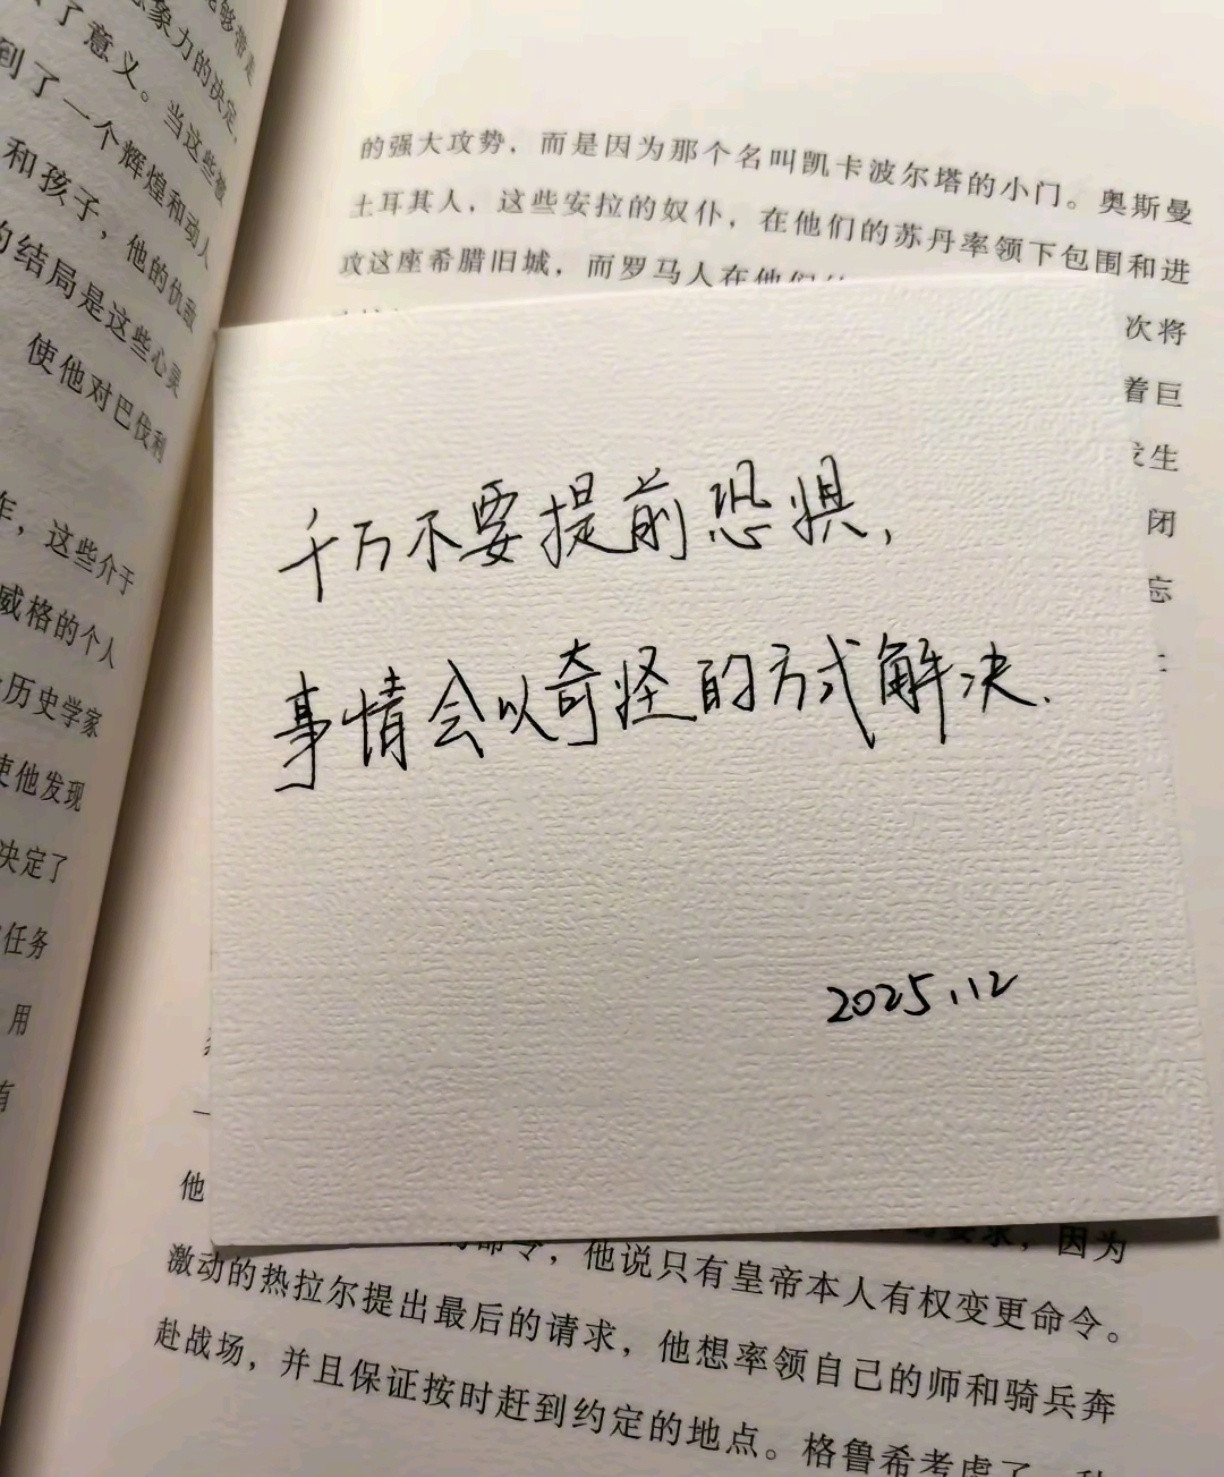 能够带走
想象力的决定，
了意义。当这些激
到了一个辉煌和动人
和孩子，他的仇敌
的结局是这些心灵
使他对巴伐利
年，这些介于
威格的个人
历史学家
使他发现
决定了
任务
用
有
的强大攻势，而是因为那个名叫凯卡波尔塔的小门。奥斯曼
土耳其人，这些安拉的奴仆，在他们的苏丹率领下包围和进
攻这座希腊旧城，而罗马人在他们
次将
着巨
发生
闭
忘
千万不要提前恐惧，
事情会以奇怪的方式解决.
2025.12
他
命令，他说只有皇帝本人有权变更命令。
要求，因为
激动的热拉尔提出最后的请求，他想率领自己的师和骑兵奔
赴战场，并且保证按时赶到约定的地点。格鲁希考虑了一秒